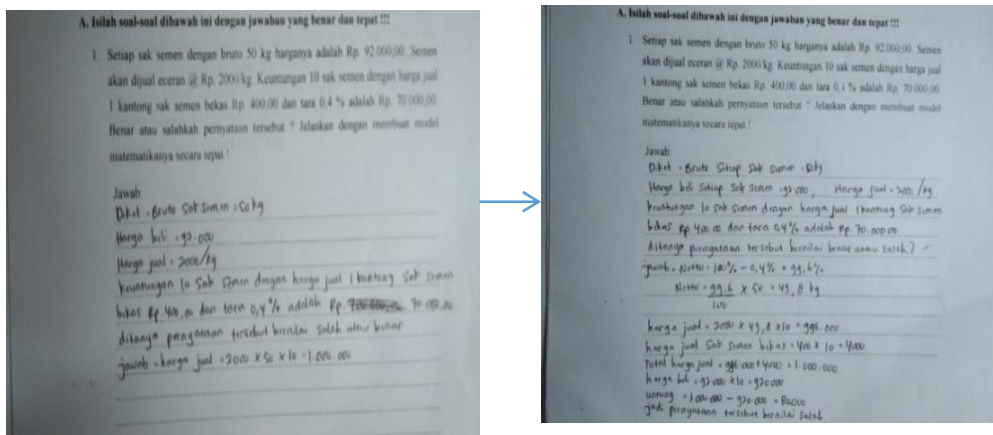 A. Isilah soal-soal dibawah ini dengan jawaban yang benar dan tepat !!!
1. Setiap sak semen dengan bruto 50 kg harganya adalah Rp. 92.000,00. Semen
akan dijual eceran @ Rp. 2000/kg. Keuntungan 10 sak semen dengan harga jual
1 kantong sak semen bekas Rp. 400,00 dan tara 0,4 % adalah Rp. 70.000,00.
Benar atau salahkah pernyataan tersebut ? Jelaskan dengan membuat model
matematikanya secara tepat !
Jawab:
Diket : Bruto Sak Semen : 50 kg
Harga beli : 92.000
Harga jual = 2000/kg
keuntungan 10 Sak Semen dengan harga jual 1 kantong Sak Semen
bekas Rp 400,00 dan tara 0,4% adalah Rp 70.000.00
ditanya pernyataan tersebut bernilai salah atau benar
jawab = harga jual = 2000 x 50 x 10 = 1.000.000
A. Isilah soal-soal dibawah ini dengan jawaban yang benar dan tepat !!!
1. Setiap sak semen dengan bruto 50 kg harganya adalah Rp. 92.000,00. Semen
akan dijual eceran @ Rp. 2000/kg. Keuntungan 10 sak semen dengan harga jual
1 kantong sak semen bekas Rp. 400,00 dan tara 0,4 % adalah Rp. 70.000,00.
Benar atau salahkah pernyataan tersebut ? Jelaskan dengan membuat model
matematikanya secara tepat !
Jawab:
Diket : Bruto Setiap Sak Semen : 50kg
Harga beli Setiap Sak Semen : 92.000, Harga jual = 2000/kg
keuntungan 10 Sak Semen dengan harga jual 1 kantong Sak Semen
bekas Rp 400.00 dan tara 0,4% adalah Rp 70.000.00
ditanya pernyataan tersebut bernilai benar atau salah?
jawab = Netto = 100% - 0,4% = 99,6%
Netto = 99,6 x 50 = 49,8 kg
100
harga jual = 2000 x 49,8 x 10 = 996.000
harga jual Sak Semen bekas = 400 x 10 = 4000
Total harga jual = 996.000 + 4000 = 1.000.000
harga beli = 92.000 x 10 = 920.000
untung = 1.000.000 - 920.000 = 80.000
jadi pernyataan tersebut bernilai salah